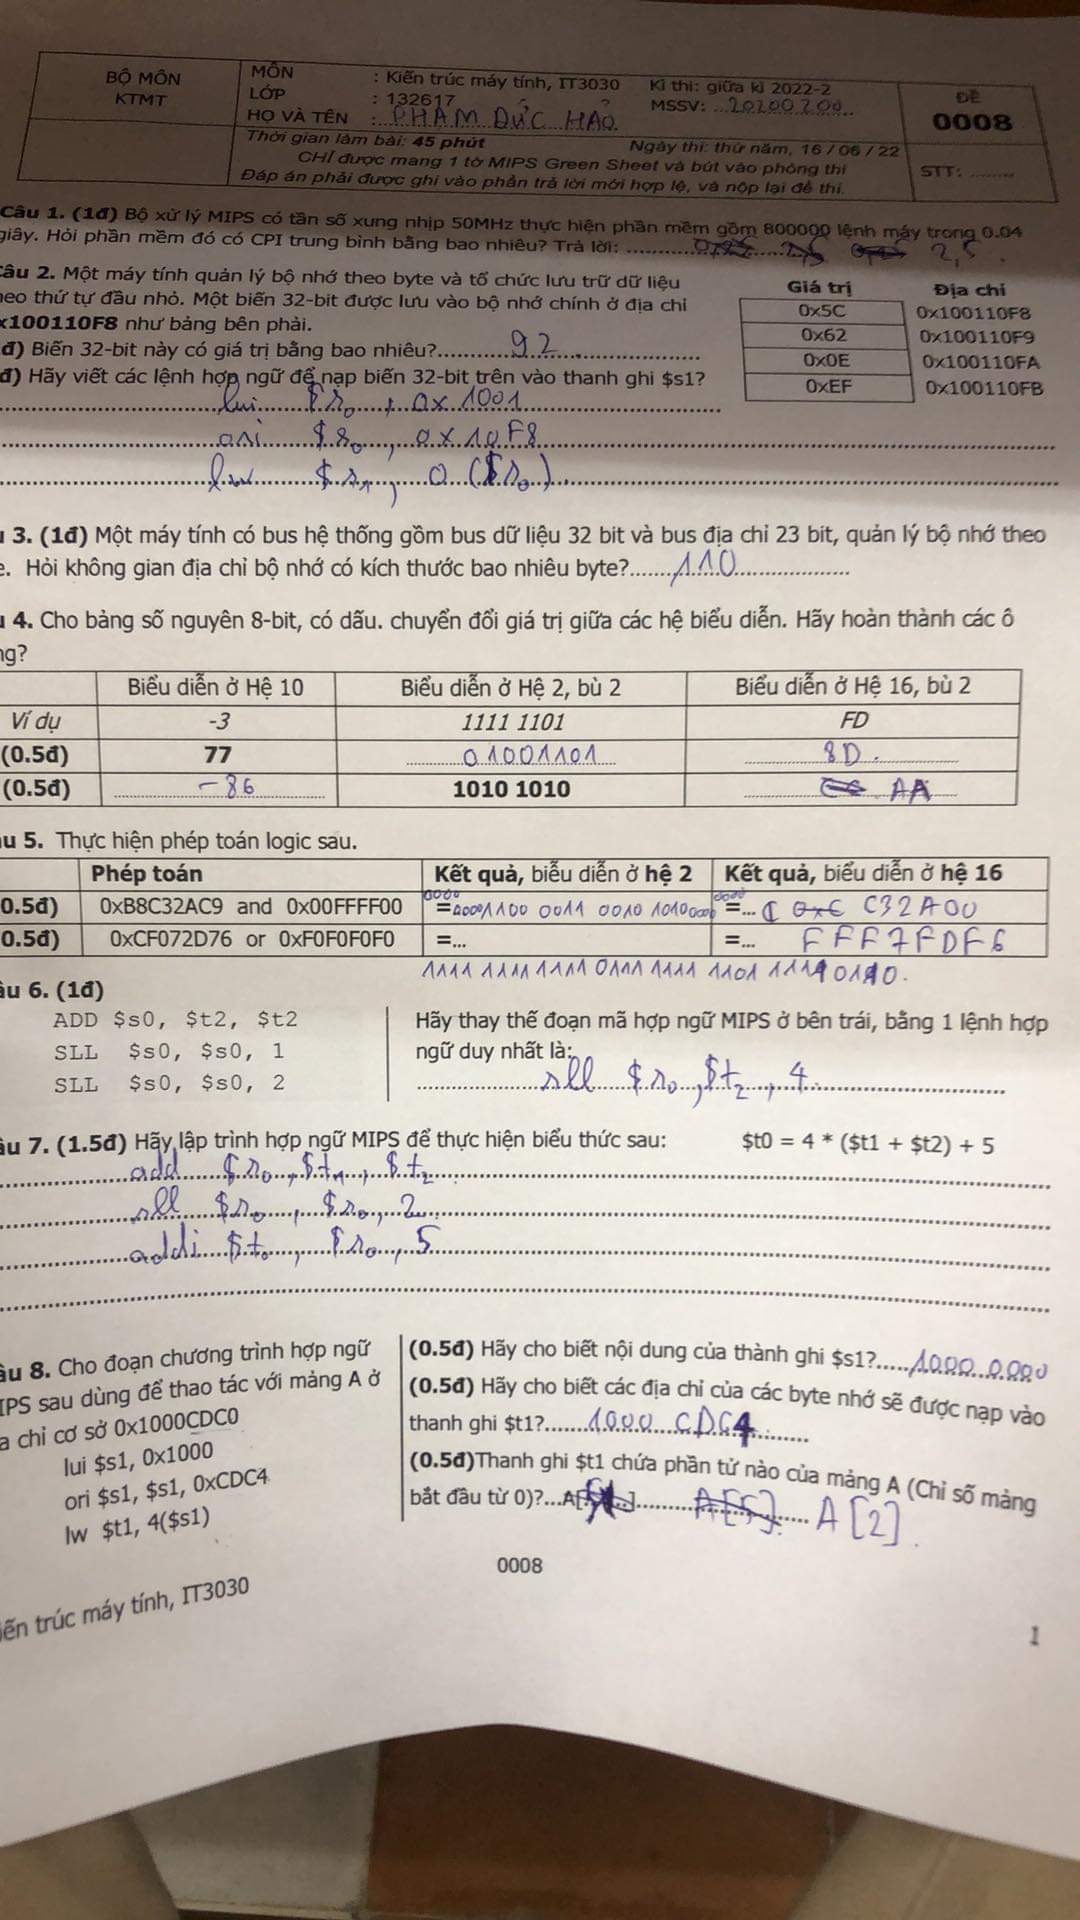 BỘ MÔN
KTMT
MÔN : Kiến trúc máy tính, IT3030 Kì thi: giữa kì 2022-2
LỚP : 132617 MSSV: 20200200
HỌ VÀ TÊN : PHẠM ĐỨC HẢO
Thời gian làm bài: 45 phút Ngày thi: thứ năm, 16 / 06 / 22
CHỈ được mang 1 tờ MIPS Green Sheet và bút vào phòng thi
Đáp án phải được ghi vào phần trả lời mới hợp lệ, và nộp lại đề thi.
ĐỀ
0008
STT: ........
Câu 1. (1đ) Bộ xử lý MIPS có tần số xung nhịp 50MHz thực hiện phần mềm gồm 800000 lệnh máy trong 0.04
giây. Hỏi phần mềm đó có CPI trung bình bằng bao nhiêu? Trả lời: 2,5.
Câu 2. Một máy tính quản lý bộ nhớ theo byte và tổ chức lưu trữ dữ liệu
heo thứ tự đầu nhỏ. Một biến 32-bit được lưu vào bộ nhớ chính ở địa chỉ
x100110F8 như bảng bên phải.
đ) Biến 32-bit này có giá trị bằng bao nhiêu? 92
đ) Hãy viết các lệnh hợp ngữ để nạp biến 32-bit trên vào thanh ghi $s1?
Giá trị Địa chỉ
0x5C 0x100110F8
0x62 0x100110F9
0x0E 0x100110FA
0xEF 0x100110FB
lui $s0, 0x1001
ori $s0, 0x10F8
lw $s1, 0($s0)
u 3. (1đ) Một máy tính có bus hệ thống gồm bus dữ liệu 32 bit và bus địa chỉ 23 bit, quản lý bộ nhớ theo
e. Hỏi không gian địa chỉ bộ nhớ có kích thước bao nhiêu byte? 110
u 4. Cho bảng số nguyên 8-bit, có dấu. chuyển đổi giá trị giữa các hệ biểu diễn. Hãy hoàn thành các ô
ng?
Biểu diễn ở Hệ 10 Biểu diễn ở Hệ 2, bù 2 Biểu diễn ở Hệ 16, bù 2
Ví dụ -3 1111 1101 FD
(0.5đ) 77 01001101 8D.
(0.5đ) -86 1010 1010 AA
âu 5. Thực hiện phép toán logic sau.
Phép toán Kết quả, biễu diễn ở hệ 2 Kết quả, biểu diễn ở hệ 16
0.5đ) 0xB8C32AC9 and 0x00FFFF00 =... C32A00
0.5đ) 0xCF072D76 or 0xF0F0F0F0 =... =... FFF7FDF6
âu 6. (1đ)
ADD $s0, $t2, $t2
SLL $s0, $s0, 1
SLL $s0, $s0, 2
Hãy thay thế đoạn mã hợp ngữ MIPS ở bên trái, bằng 1 lệnh hợp
ngữ duy nhất là:
sll $s0, $t2, 4
âu 7. (1.5đ) Hãy lập trình hợp ngữ MIPS để thực hiện biểu thức sau: $t0 = 4 * ($t1 + $t2) + 5
add $s0, $t1, $t2
sll $s0, $s0, 2
addi $t0, $s0, 5
âu 8. Cho đoạn chương trình hợp ngữ
IPS sau dùng để thao tác với mảng A ở
a chỉ cơ sở 0x1000CDC0
lui $s1, 0x1000
ori $s1, $s1, 0xCDC4
lw $t1, 4($s1)
(0.5đ) Hãy cho biết nội dung của thành ghi $s1? 1000 0000
(0.5đ) Hãy cho biết các địa chỉ của các byte nhớ sẽ được nạp vào
thanh ghi $t1? 1000 CDC4
(0.5đ)Thanh ghi $t1 chứa phần tử nào của mảng A (Chỉ số mảng
bắt đầu từ 0)?...A[.....] A[5] A[2].
0008
iến trúc máy tính, IT3030
1